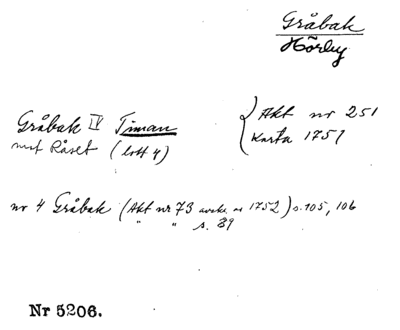 Gråbak
Hörby
Gråbak IV Timan
mot Råset (lott 4)
Akt nr 251
Karta 1751
nr 4 Gråbak (Akt nr 73 1752) s. 105, 106
" " s. 89
Nr 5206.